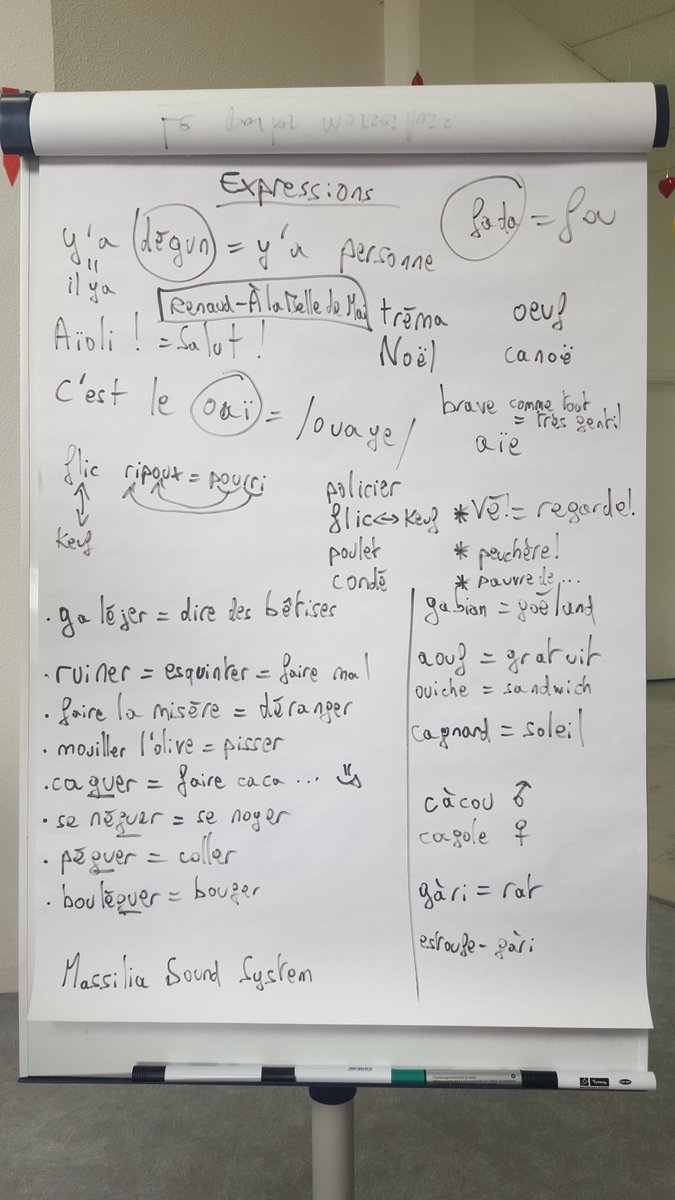 Le parler marseillais
Expressions
y'a dégun = y'a personne
"
il ya
fada = fou
Renaud - À la Belle de Mai
Aïoli ! = Salut !
tréma
Noël
oeuf
canoë
C'est le oaï = /ouaye/
brave comme tout
= très gentil
aïe
flic ripoux = pourri
keuf
policier
flic ↔ keuf
poulet
condé
* Vé ! = regarde !
* peuchère !
* pauvre de ...
· galéjer = dire des bêtises
· ruiner = esquinter = faire mal
· faire la misère = déranger
· mouiller l'olive = pisser
· caguer = faire caca ...
· se néguer = se noyer
· péguer = coller
· bouléguer = bouger
Massilia Sound System
gabian = goëland
aouf = gratuit
ouiche = sandwich
cagnard = soleil
càcou ♂
cagole ♀
gàri = rat
estoufe-gàri